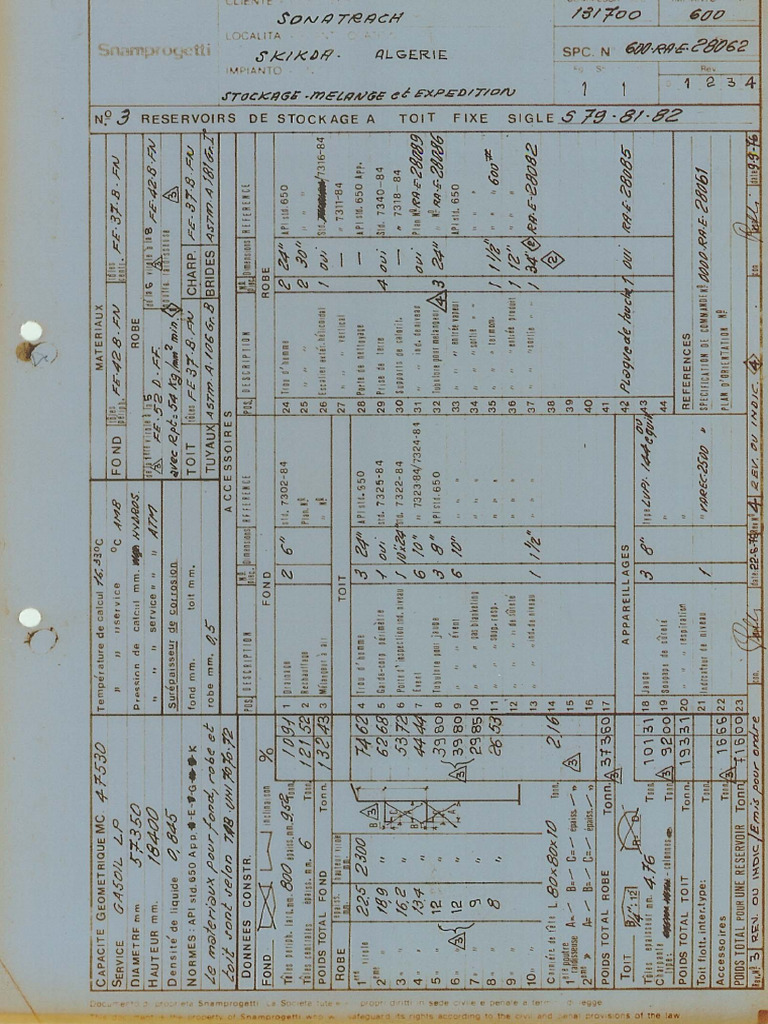 CLIENTE
SONATRACH
LOCALITA
SKIKDA. ALGERIE
IMPIANTO
STOCKAGE-MELANGE et EXPEDITION
Snamprogetti
181700
600
SPC. N 600-RA-E-28062
1 1
Rev.
0 1 2 3 4
N.° 3 RESERVOIRS DE STOCKAGE A TOIT FIXE SIGLE S 79-81-82
CAPACITE GEOMETRIQUE MC. 47530
SERVICE GASOIL LP
DIAMETRE mm 57350
HAUTEUR mm. 18400
Densité de liquide 0,845
NORMES: API std. 650 App.
Le materiaux pour fond, robe et
toit sont selon
Température de calcul
" " service °C AMB
Pression de calcul mm.
" " service " " ATM
Surépaisseur de corrosion
fond mm. toit mm.
robe mm. 0,5
MATERIAUX
FOND
FE-42 B. FN
FE-37-B-FN
ROBE
FE-52 D. FF.
FE-42-B-FN
avec Rpt: 54 kg/mm² min.
TOIT
FE 37-B.FN
CHARP.
FE-37-B.FN
TUYAUX ASTM-A.106 Gr.B
BRIDES ASTM-A.181 Gr.I
DONNEES CONSTR.
FOND
inclinaison %
Tôles périph. larg. mm. 800 épaiss. mm. 9,52 Tonn. 1091
Tôles centrales épaiss. mm. 6 Tonn. 12152
POIDS TOTAL FOND Tonn. 13243
ROBE
1ère virole 22,5 2300 7462
2ème " 18,9 " 6268
3 " " 16,2 " 5372
4 " " 13,4 " 4444
5 " " 12 " 3980
6 " " 12 " 3980
7 " " 9 " 2985
8 " " 8 " 2653
9 " "
10 " "
Cornière de tête L 80x80x10 Tonn. 2,16
POIDS TOTAL ROBE Tonn. 37360
TOIT
Tôles épaisseur mm. 4.76 Tonn. 10131
Tonn. 9200
POIDS TOTAL TOIT Tonn. 19331
Toit flott. inter. type:
Accessoires Tonn. 1666
POIDS TOTAL POUR UNE RESERVOIR Tonn. 71600
ACCESSOIRES
POS. DESCRIPTION N° Dimensions REFERENCE
FOND
1 Drainage 2 6" std. 7302-84
2 Rechauffage Plan. N°
3 Mélangeur à air " N°
TOIT
4 Trou d'homme 3 24" API std. 650
5 Garde-corp périmètre 1 oui std. 7325-84
6 Porte d'inspection ind. niveau 1 10"x24" " 7322-84
7 Évent 6 10" " 7323-84/7324-84
8 Tubulure pour jauge 3 8" API std. 650
9 " " évent 6 10" " "
10 " " gas blanketing " "
11 " " soup. resp. " "
12 " " " de sûreté " "
13 " " ind. de niveau 1 1½" " "
14
15
16
17
APPAREILLAGES
18 Jauge 3 8"
19 Soupape de sûreté
20 " " respiration
21 Indicateur de niveau 1 " VAREC-2500 "
22
23
POS. DESCRIPTION N° Dimensions REFERENCE
ROBE
24 Trou d'homme 2 24" API std. 650
25 " " 2 30" " "
26 Escalier extér. hélicoïdal 1 oui Std. 7316-84
27 " " vertical — " 7311-84
28 Porte de nettoyage — API std. 650 App.
29 Prise de terre 4 oui Std. 7340-84
30 Supports de calorif. — " 7318-84
31 " ind. de niveau 1 oui Plan N° RA-E-28089
32 Tubulure pour mélangeur 3 24" " N° RA-E-28086
33 " " entrée vapeur API std. 650
34 " " sortie " " "
35 " " thermom. 1 1½" " 600#
36 " " entrée produit 1 12" " "
37 " " sortie " 1 34" RA-E-28082
38
39
40
41
42 Plaque de buche 1 oui RA-E-28085
43
44
REFERENCES
SPECIFICATION DE COMMANDE N° 0000-RA-E-28061
PLAN D'ORIENTATION N°
3 REV. OU INDIC / Emis pour ordre
4 REV. OU INDIC.
date 9-9-76
Documento di proprietà Snamprogetti. La Società tutela i propri diritti in sede civile e penale a termini di legge
This document is the property of Snamprogetti who will safeguard its rights according to the civil and penal provisions of the law.